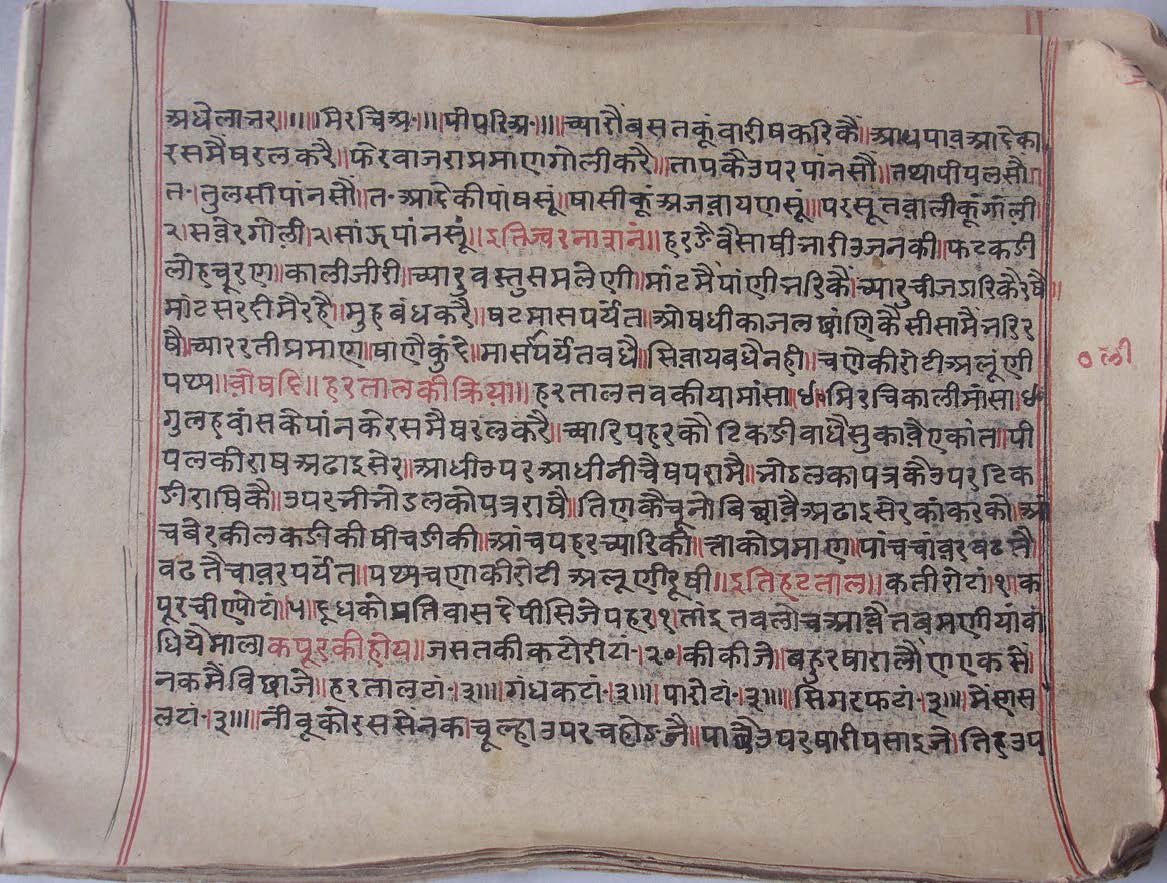 अधेलान्नर॥॥मिरचिअ॰॥पीपरिअ॰॥च्यारौंवसतकूंवारीषकरिकैं॥आधपावआदेका
रसमैंषरलकरै॥फेरवाजराप्रमाणगोलीकरै॥तापकैउपरपांनसौं॥तथापीपलसौं
त॰।तुलसीपांनसौं॥त॰आदेकीपांषसूं॥षासीकूंअजवायणसूं॥परसूतवालीकूंगोली
२।सवेरगोली२।सांऊपांनसूं॥इतिज्वरनाशनं॥हरडैवैसाषीनारीउजनकी॥फटकडी
लोहचूरण॥कालीजीरी॥च्यारुवस्तुसमलेणी॥मांटमैंपांणीभरिकैं॥च्यारुचीजडारिकैरषै
मांटसरदीमैरहै॥मुहबंधकरै॥षटमासपर्यंत॥ओषधीकाजलछांणिकैसीसामैंभरिर
षै॥च्याररतीप्रमाण॥षाणैकुंदे॥मासपर्यंतवधै॥सिवायवधैनही॥चणेकीरोटीअलूंणी
पथ्य॥हरतालकीक्रिया॥हरतालतवकीयामांसा।मिरचिकालीमांसा
गुलहवांसकेपांनकेरसमैषरलकरै॥च्यारिपहरकौटिकडीवाधैसुकावैएकांत॥पी
पलकीराषअढाइसेर॥आधीउपरआधीनीचैषपरामै॥भोडलकापत्रकैउपरटिक
डीराषिकै॥उपरभीभोडलकोपत्रराषै॥तिणकैचूनोबिछावैअढाइसेरकांकरको॥आं
चबेरकीलकडीकीषीचडीकी॥आंचपहरच्यारिकी॥ताकोप्रमाण॥पांचचांवरवढतै
वढतैचावरपर्यंत॥पथ्यचणाकीरोटीअलूणीरूषी॥इतिहटताल॥कतीरोटां१।क
पूरचीएपोटां॥५।दूधकोप्रतिवासदेपीसिजेपहर१तांइतवलोचआवैतबमणीयांवां
धियैमालाकपूरकीहोय॥जसतकीकटोरीटां॰।२०।कीकीजै॥बहुरषारालौंणएकसे
नकमैविछाजै॥हरतालटां॰।३॥॥गंधकटां॰।३॥॥पारोटां॰।३॥॥सिगरफटां॰।३॥॥मैंणस
लटां॰।३॥॥नीवूकोरससेनकाचूल्हाउपरचहोडजै॥पाछैउपरषारीपसाइजै॥तिहउप
०ली